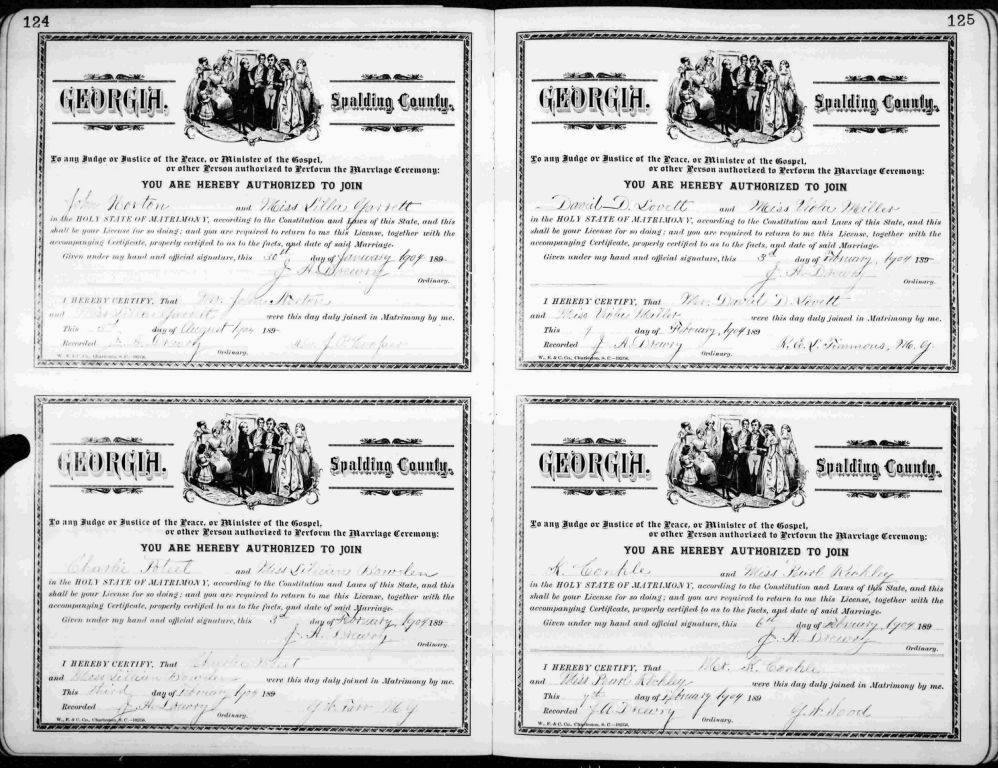 124
GEORGIA. Spalding County.
To any Judge or Justice of the Peace, or Minister of the Gospel,
or other Person authorized to Perform the Marriage Ceremony:
YOU ARE HEREBY AUTHORIZED TO JOIN
John Norton and Miss Lilla Garrett
in the HOLY STATE OF MATRIMONY, according to the Constitution and Laws of this State, and this
shall be your License for so doing; and you are required to return to me this License, together with the
accompanying Certificate, properly certified to as to the facts, and date of said Marriage.
Given under my hand and official signature, this 30th day of January 1904 189
J. A. Drewry
Ordinary.
I HEREBY CERTIFY, That Mr. John Norton
and Miss Lilla Garrett were this day duly joined in Matrimony by me.
This day of August 1904 189
Recorded J. A. Drewry Rev. J. P. Cooper
Ordinary.
W., E. & C. Co., Charleston, S. C.
GEORGIA. Spalding County.
To any Judge or Justice of the Peace, or Minister of the Gospel,
or other Person authorized to Perform the Marriage Ceremony:
YOU ARE HEREBY AUTHORIZED TO JOIN
Charlie and Miss Lillian Bowden
in the HOLY STATE OF MATRIMONY, according to the Constitution and Laws of this State, and this
shall be your License for so doing; and you are required to return to me this License, together with the
accompanying Certificate, properly certified to as to the facts, and date of said Marriage.
Given under my hand and official signature, this 3d day of February 1904 189
J. A. Drewry
Ordinary.
I HEREBY CERTIFY, That Charlie
and Miss Lillian Bowden were this day duly joined in Matrimony by me.
This third day of February 1904 189
Recorded J. A. Drewry M G
Ordinary.
W., E. & C. Co., Charleston, S. C.
125
GEORGIA. Spalding County.
To any Judge or Justice of the Peace, or Minister of the Gospel,
or other Person authorized to Perform the Marriage Ceremony:
YOU ARE HEREBY AUTHORIZED TO JOIN
David D. Lovett and Miss Viola Miller
in the HOLY STATE OF MATRIMONY, according to the Constitution and Laws of this State, and this
shall be your License for so doing; and you are required to return to me this License, together with the
accompanying Certificate, properly certified to as to the facts, and date of said Marriage.
Given under my hand and official signature, this 3d day of February, 1904 189
J. A. Drewry
Ordinary.
I HEREBY CERTIFY, That Mr. David D. Lovett
and Miss Viola Miller were this day duly joined in Matrimony by me.
This day of February, 1904 189
Recorded J. A. Drewry Timmons, M. G.
Ordinary.
W., E. & C. Co., Charleston, S. C.
GEORGIA. Spalding County.
To any Judge or Justice of the Peace, or Minister of the Gospel,
or other Person authorized to Perform the Marriage Ceremony:
YOU ARE HEREBY AUTHORIZED TO JOIN
K. Conkle and Miss Pearl
in the HOLY STATE OF MATRIMONY, according to the Constitution and Laws of this State, and this
shall be your License for so doing; and you are required to return to me this License, together with the
accompanying Certificate, properly certified to as to the facts, and date of said Marriage.
Given under my hand and official signature, this 6th day of February, 1904 189
J. A. Drewry
Ordinary.
I HEREBY CERTIFY, That Mr. K. Conkle
and Miss Pearl were this day duly joined in Matrimony by me.
This 7th day of February 1904 189
Recorded J. A. Drewry Wood
Ordinary.
W., E. & C. Co., Charleston, S. C.